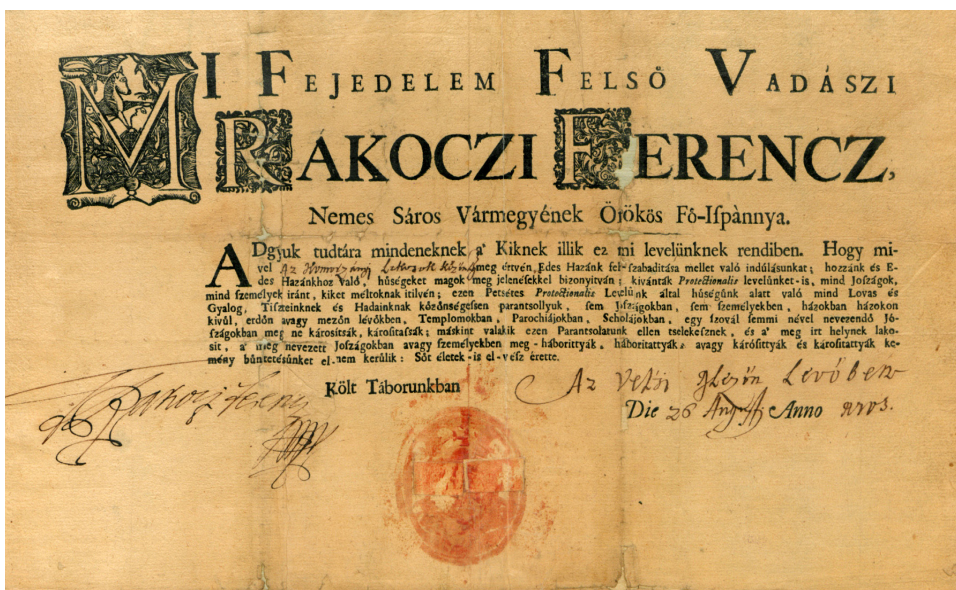 MI FEJEDELEM FELSŐ VADÁSZI
RAKOCZI FERENCZ,
Nemes Sáros Vármegyének Örökös Fő-Iſpànnya.
ADgyuk tudtára mindeneknek a' Kiknek illik ez mi levelünknek rendiben. Hogy mi-
vel Az meg értvén Edes Hazánk fel-ſzabaditása mellet való indúlásunkat; hozzánk és E-
des Hazánkhoz Való, hűségeket magok meg jelenésekkel bizonyitván; kivánták Protectionalis levelünket-is, mind Joſzágok,
mind ſzemélyek iránt, kiket méltoknak itilvén; ezen Petsétes Protectionalis Levelünk által hűségünk alatt való mind Lovas és
Gyalog, Tiſzeinknek és Hadainknak közönségeſen parantsollyuk, ſem Jóſzágokban, ſem ſzemélyekben, házokban házokon
kivűl, erdőn avagy mezőn lévőkben, Templomokban, Parochiájokban, Scholájokban, egy ſzovál ſemmi nével nevezendő Jó-
ſzágokban meg ne kárositsák, kárositaſsák; másként valakik ezen Parantsolatunk ellen tselekeſznek, és a' meg irt helynek lako-
sit, a' meg nevezett Joſzágokban avagy ſzemélyekben meg-háborittyák, háboritattyák, avagy károſittyák és kárositattyák ke-
mény bűntetésünket el nem kerülik: Sőt életek-is el-véſz érette.
Rakoczi Ferencz
Költ Táborunkban Az Vetési Levőben
Die 26 Aug Anno 1703.